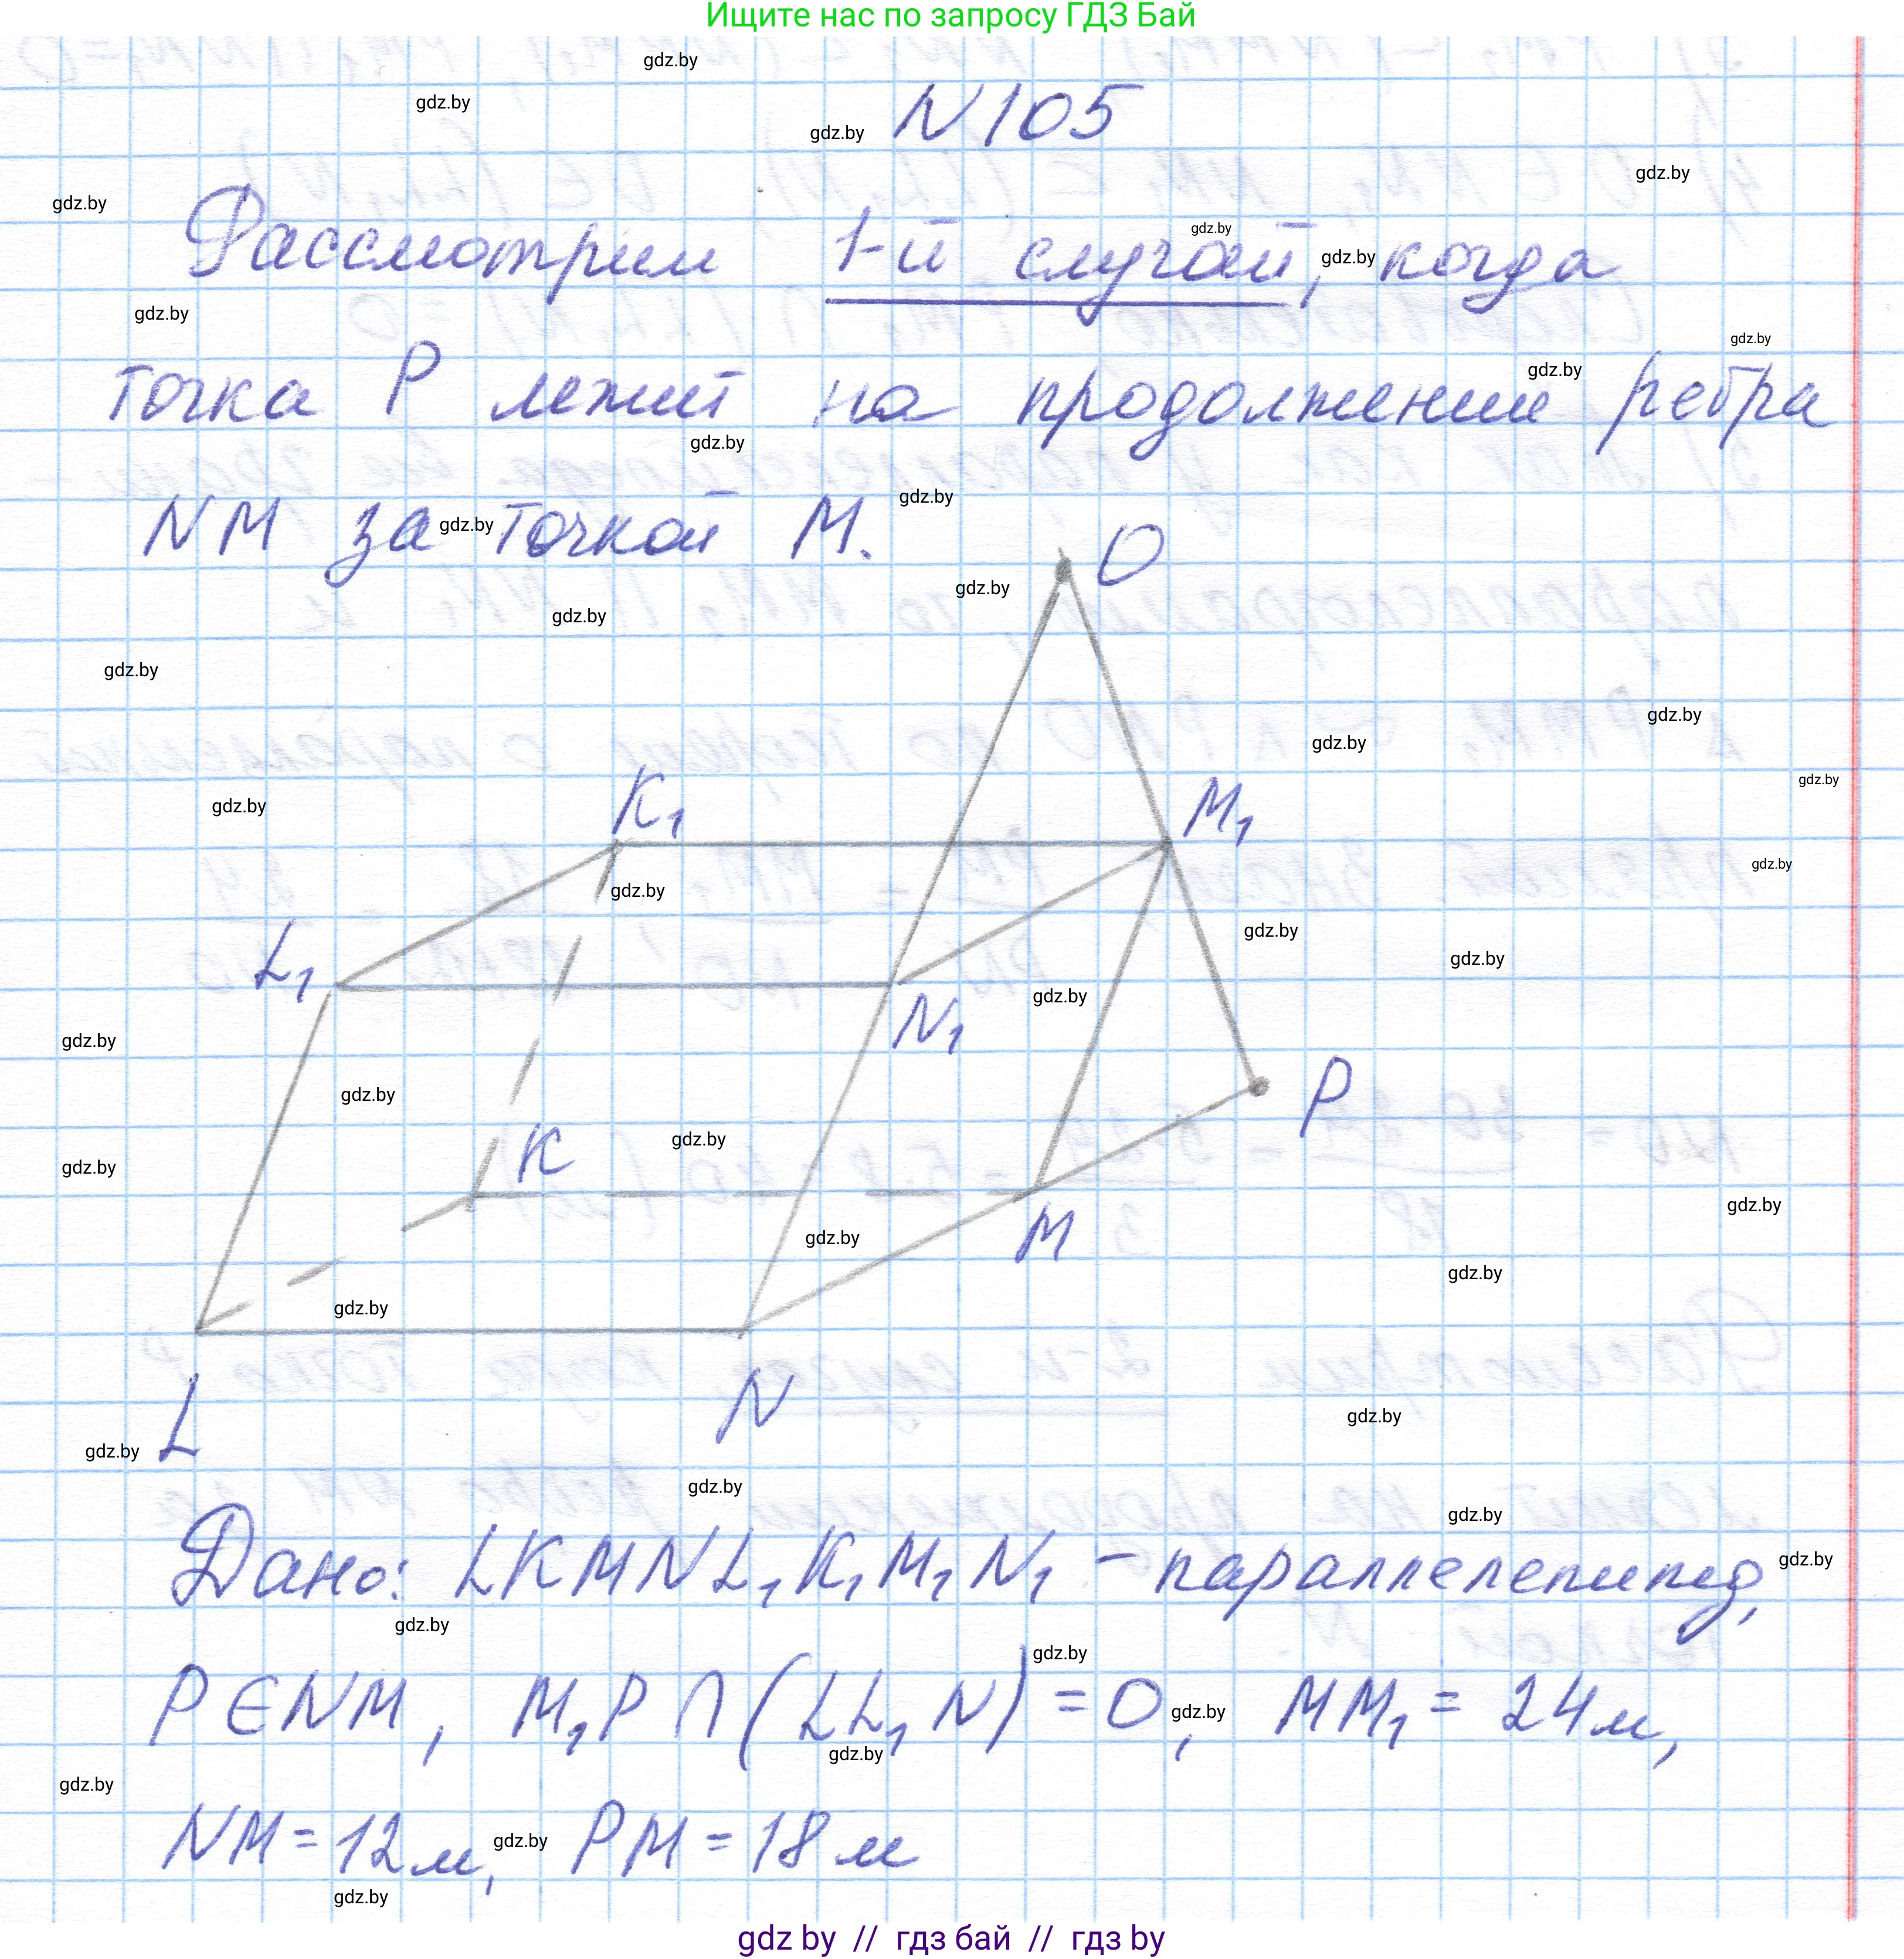 Ищите нас по запросу ГДЗ Бай
N105
Рассмотрим 1-й случай, когда
точка P лежит на продолжении ребра
NM за точкой M.
O
K₁
M₁
L₁
N₁
P
K
M
L
N
Дано: LKMNL₁K₁M₁N₁ - параллелепипед,
P∈NM, M₁P∩(LL₁N)=O, MM₁=24м,
NM=12м, PM=18м
gdz by // гдз бай // гдз by